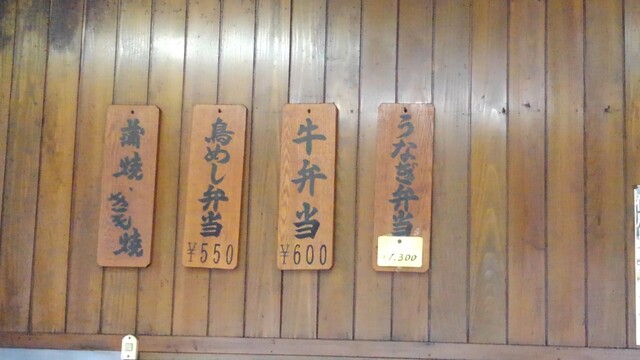 うなぎ弁当
1,300
牛弁当
¥600
鳥めし弁当
¥550
蒲焼
きも焼